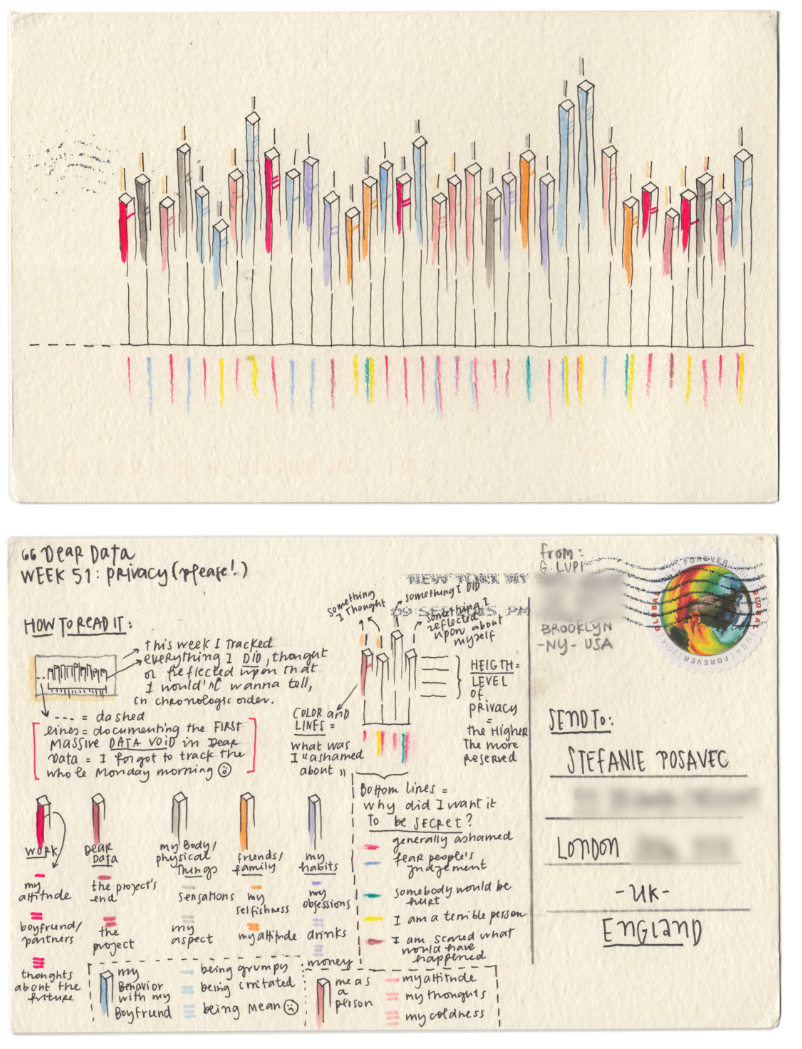 " DEAR DATA
WEEK 51: privacy (please!)
HOW TO READ IT:
This week I tracked
everything I DID, thought
or reflected upon that
I wouldn't wanna tell,
in chronologic order.
--- = dashed
lines = documenting the FIRST
MASSIVE DATA VOID in Dear
Data = I forgot to track the
whole Monday morning
something
I thought
something I DID
something I
reflected
upon about
myself
COLOR and
LINES =
what was
I "ashamed
about"
HEIGTH =
LEVEL
OF
privacy
=
the Higher
The more
reserved
Bottom lines =
why did I want it
To be SECRET?
generally ashamed
fear people's
judgement
somebody would be
hurt
I am a terrible person
I am scared what
would have
happened
WORK
my
attitude
boyfriend/
partners
thoughts
about the
future
DEAR
DATA
the project's
end
the
project
my Body/
physical
Things
sensations
my
aspect
friends/
family
my
selfishness
my attitude
my
habits
my
obsessions
drinks
money
my
Behavior
with my
Boyfriend
being grumpy
being irritated
being mean
me as
a
person
my attitude
my thoughts
my coldness
NEW YORK NY
from:
G. LUPI
BROOKLYN
-NY- USA
FOREVER
GLOBAL
USA FOREVER
SEND TO:
STEFANIE POSAVEC
LONDON
-UK-
ENGLAND